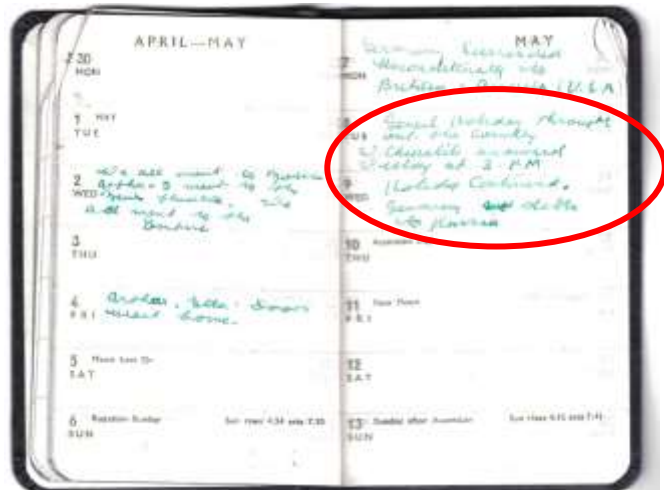 APRIL—MAY
30
MON
1 MAY
TUE
2 We all went to
WED went to the
We
all went to the
3
THU
4
FRI went home.
5 Moon Last Qr.
SAT
6 Rogation Sunday Sun rises 4.24 sets 7.30
SUN
MAY
7 Germany Surrendered
MON Unconditionally to
Britain - Russia & U.S.A
8 General Holiday through
TUE out the Country
W. Churchill announced
Victory at 3 P.M
9 Holiday Continued.
WED Germany
to Russia
10
THU
11 New Moon
FRI
12
SAT
13 Sunday after Ascension Sun rises 4.12 sets 7.41
SUN